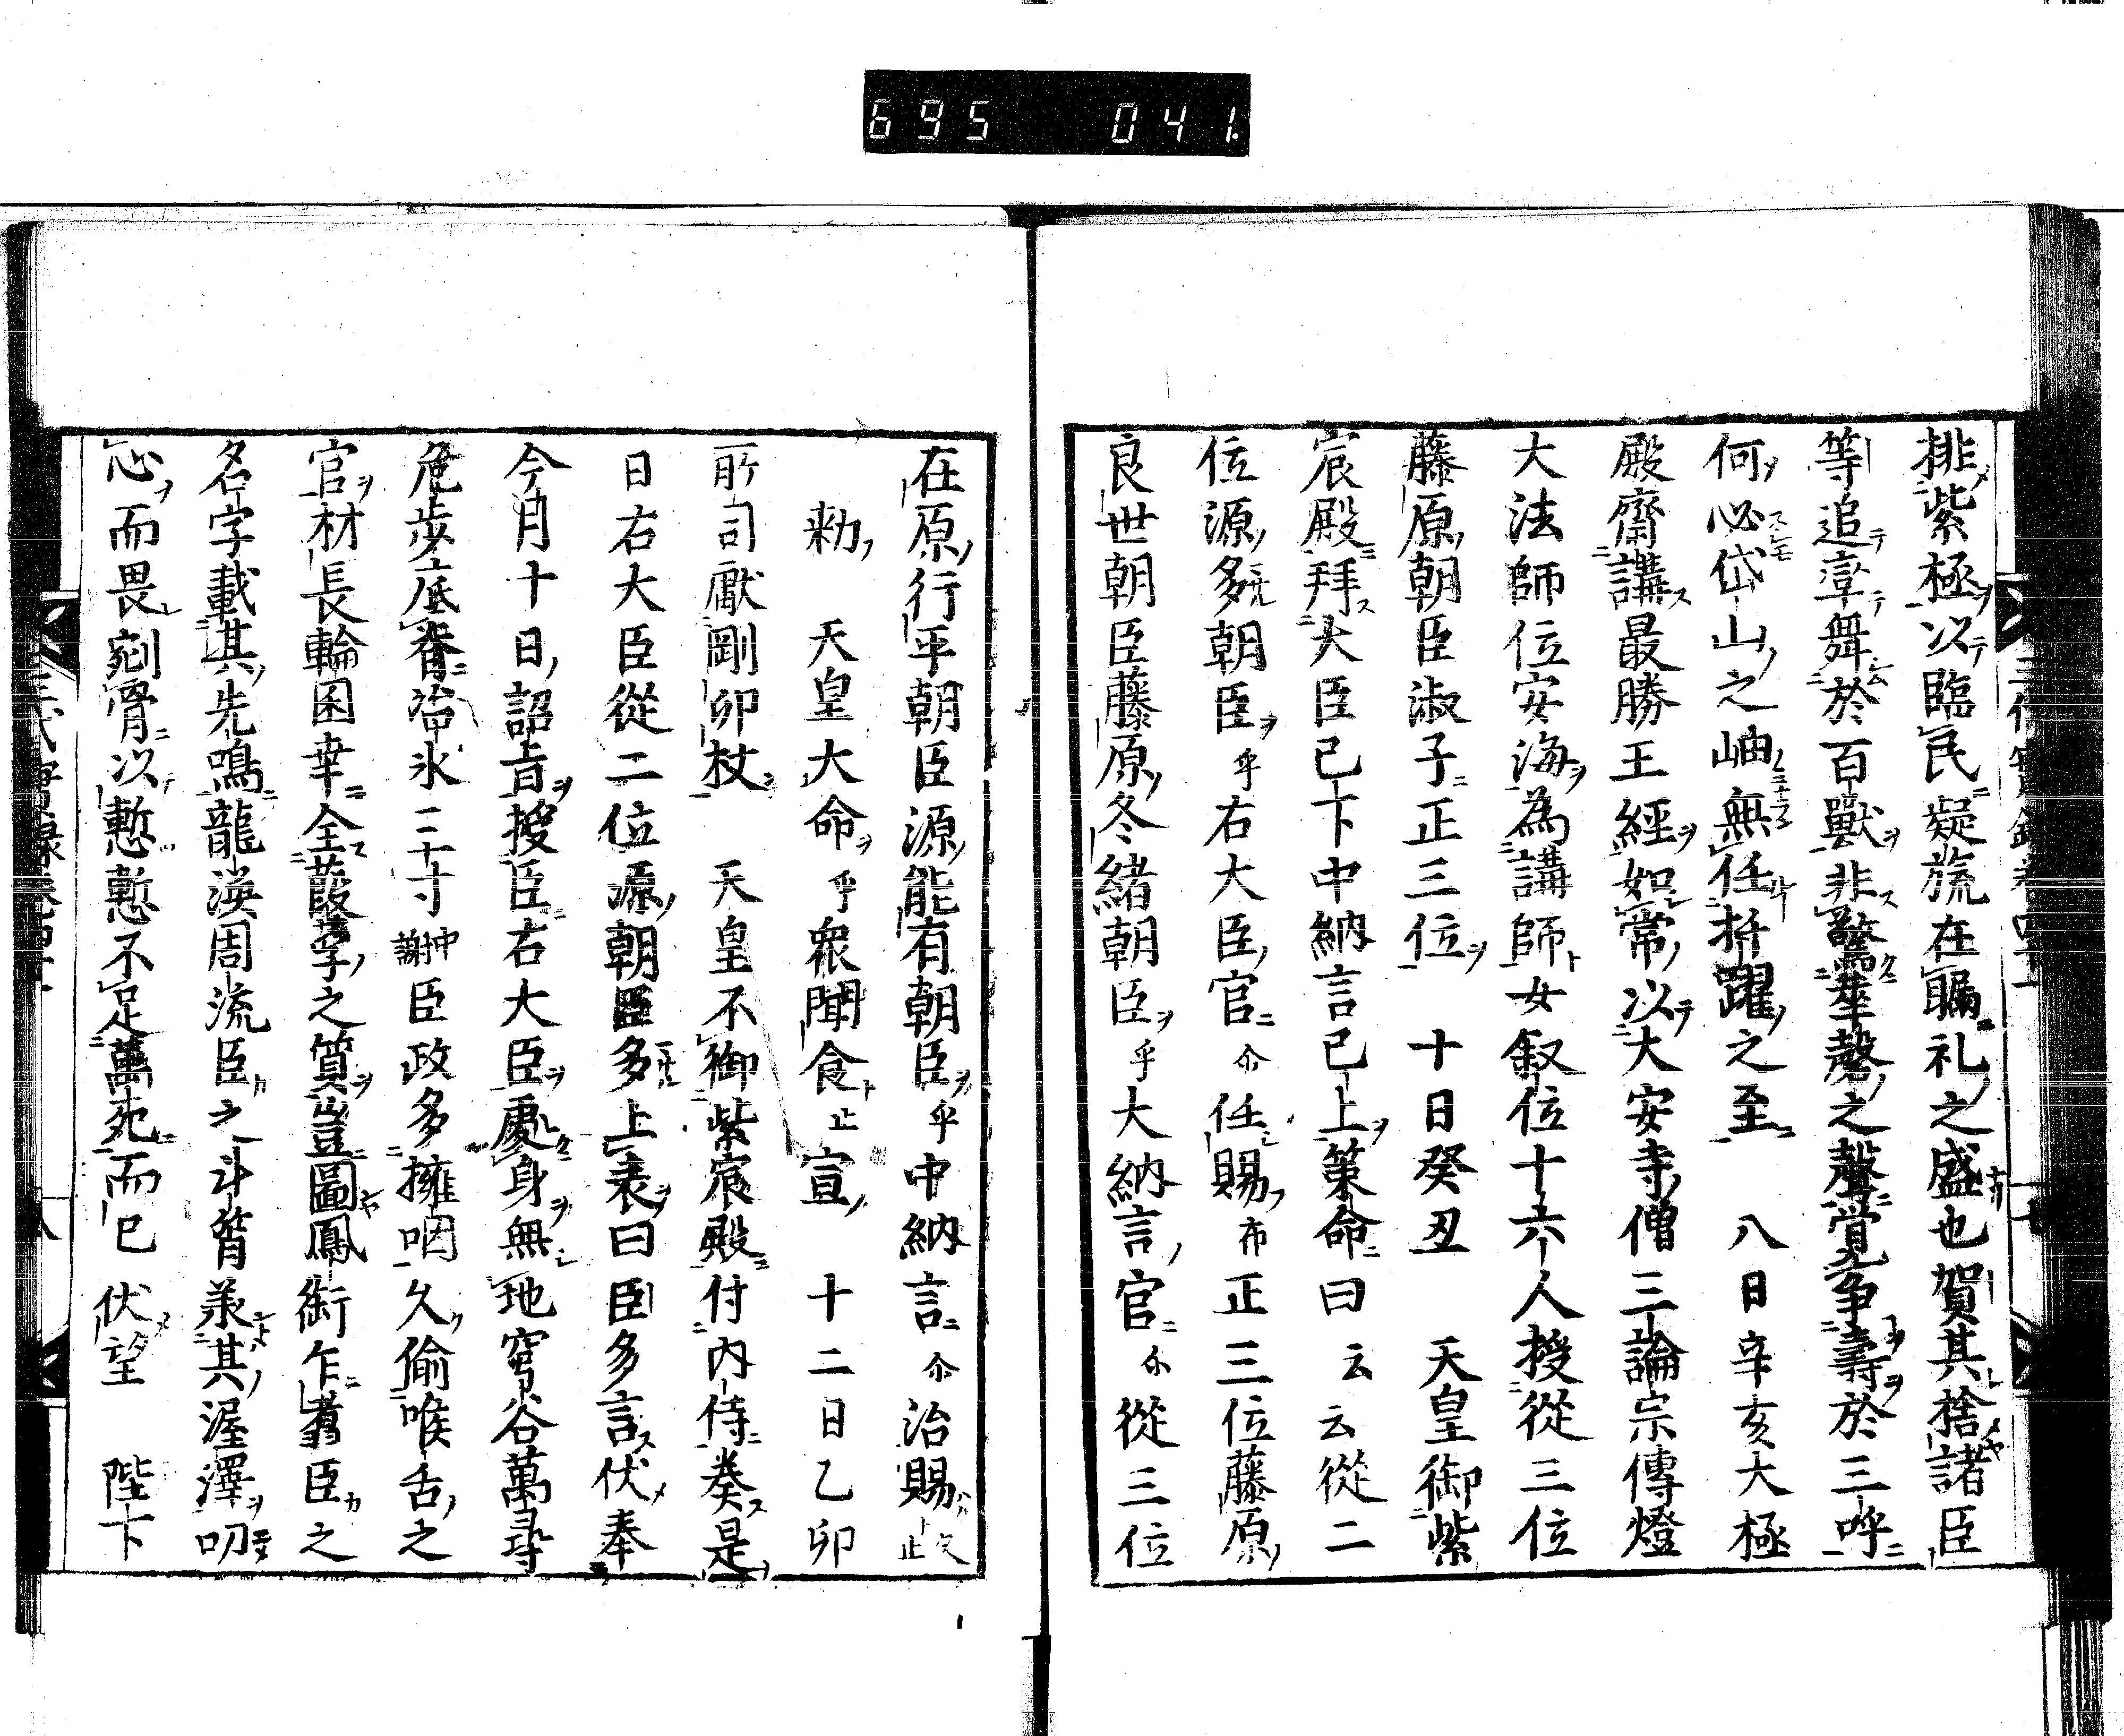 695 041.
排紫極以臨民疑旒在矚礼之盛也賀其捨諸臣
等追率舞於百獸非驚華磬之聲覚爭壽於三呼
何必岱山之岫無任抃躍之至 八日辛亥大極
殿齋講最勝王經如常以大安寺僧三論宗傳燈
大法師位安海為講師女叙位十六人授從三位
藤原朝臣淑子正三位 十日癸丑 天皇御紫
宸殿拜大臣已下中納言已上策命曰云云從二
位源多朝臣乎右大臣官尒任賜布正三位藤原
良世朝臣藤原冬緒朝臣乎大納言官尒從三位
在原行平朝臣源能有朝臣乎中納言尒治賜
勑 天皇大命乎衆聞食止宣 十二日乙卯
所司獻剛卯杖 天皇不御紫宸殿付內侍奏是
日右大臣從二位源朝臣多上表曰臣多言伏奉
今月十日詔旨授臣右大臣處身無地窮谷萬尋
危步底春冶氷三寸中謝臣政多擁咽久偷喉舌之
官材長輪囷幸全葭莩之質豈圖鳳銜乍翥臣之
名字載其先鳴龍渙周流臣之斗筲羕其渥澤叨
心而畏剜骨以慙慙不足萬死而已伏望 陛下
三代實録卷四十一